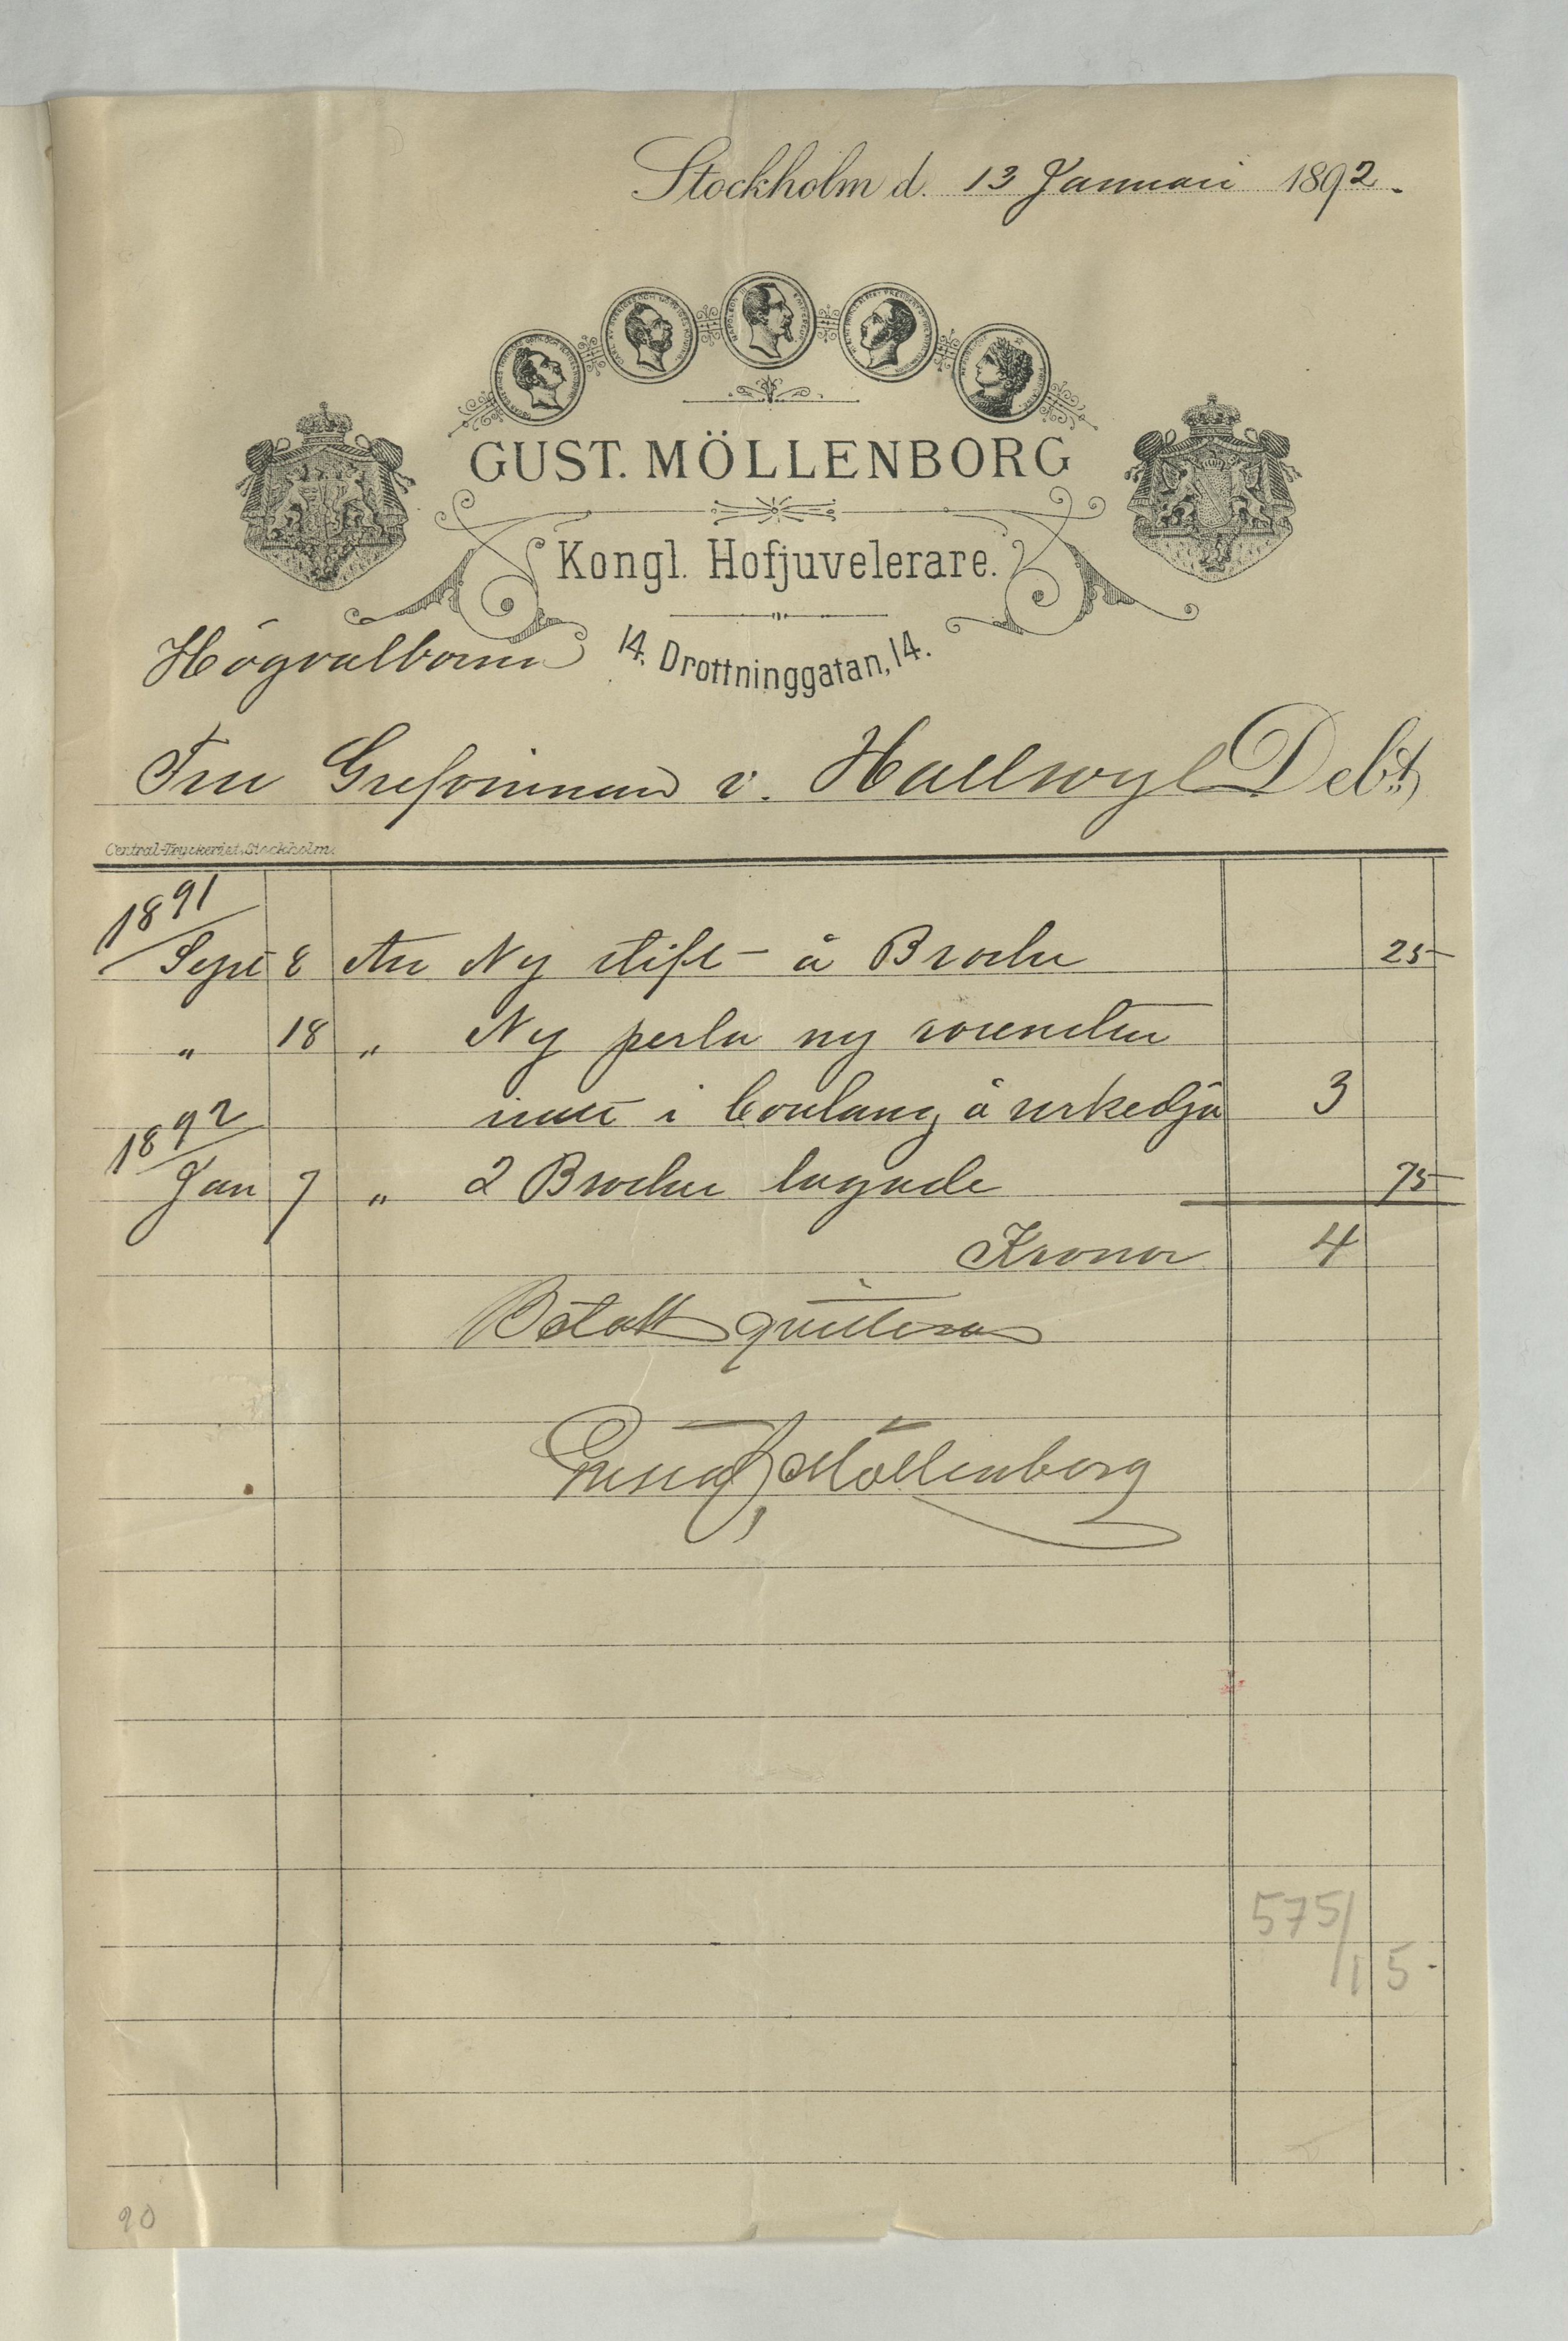 Stockholm d. 13 Januari 1892.
GUST. MÖLLENBORG
Kongl. Hofjuvelerare.
14. Drottninggatan, 14.
Högvälborna
Fru Grefvinnan v. Hallwyl Debt,
Central-Tryckeriet, Stockholm.
1891
Sept 8 An Ny stift å Broche 25
" 18 " Ny perla ny
i å urkedja 3
1892
Jan 7 " 2 Brocher lagade 75
Kronor 4
Betalt qvitteras
Gustaf Möllenborg
575/15-
90